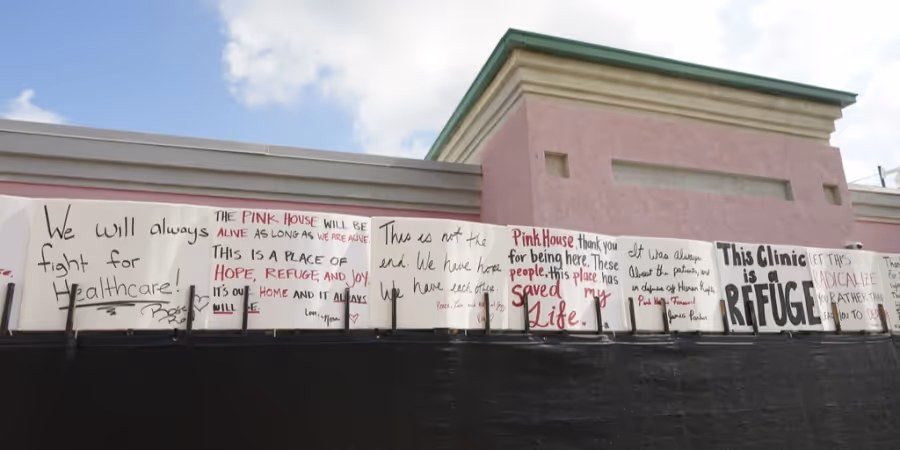 We will always
fight for
Healthcare!
THE PINK HOUSE WILL BE
ALIVE AS LONG AS WE ARE ALIVE
THIS IS A PLACE OF
HOPE, REFUGE, AND JOY
IT'S OUR HOME AND IT ALWAYS
WILL BE.
Love,
This is not the
end. We have hope
We have each other.
Pink House, thank you
for being here. These
people, this place has
saved my
Life.
It was always
About the patients, and
in defense of Human Rights
Pink House Forward
This Clinic
is a
REFUGE
LET THIS
RADICALIZE
YOU RATHER THAN
LEAD YOU TO